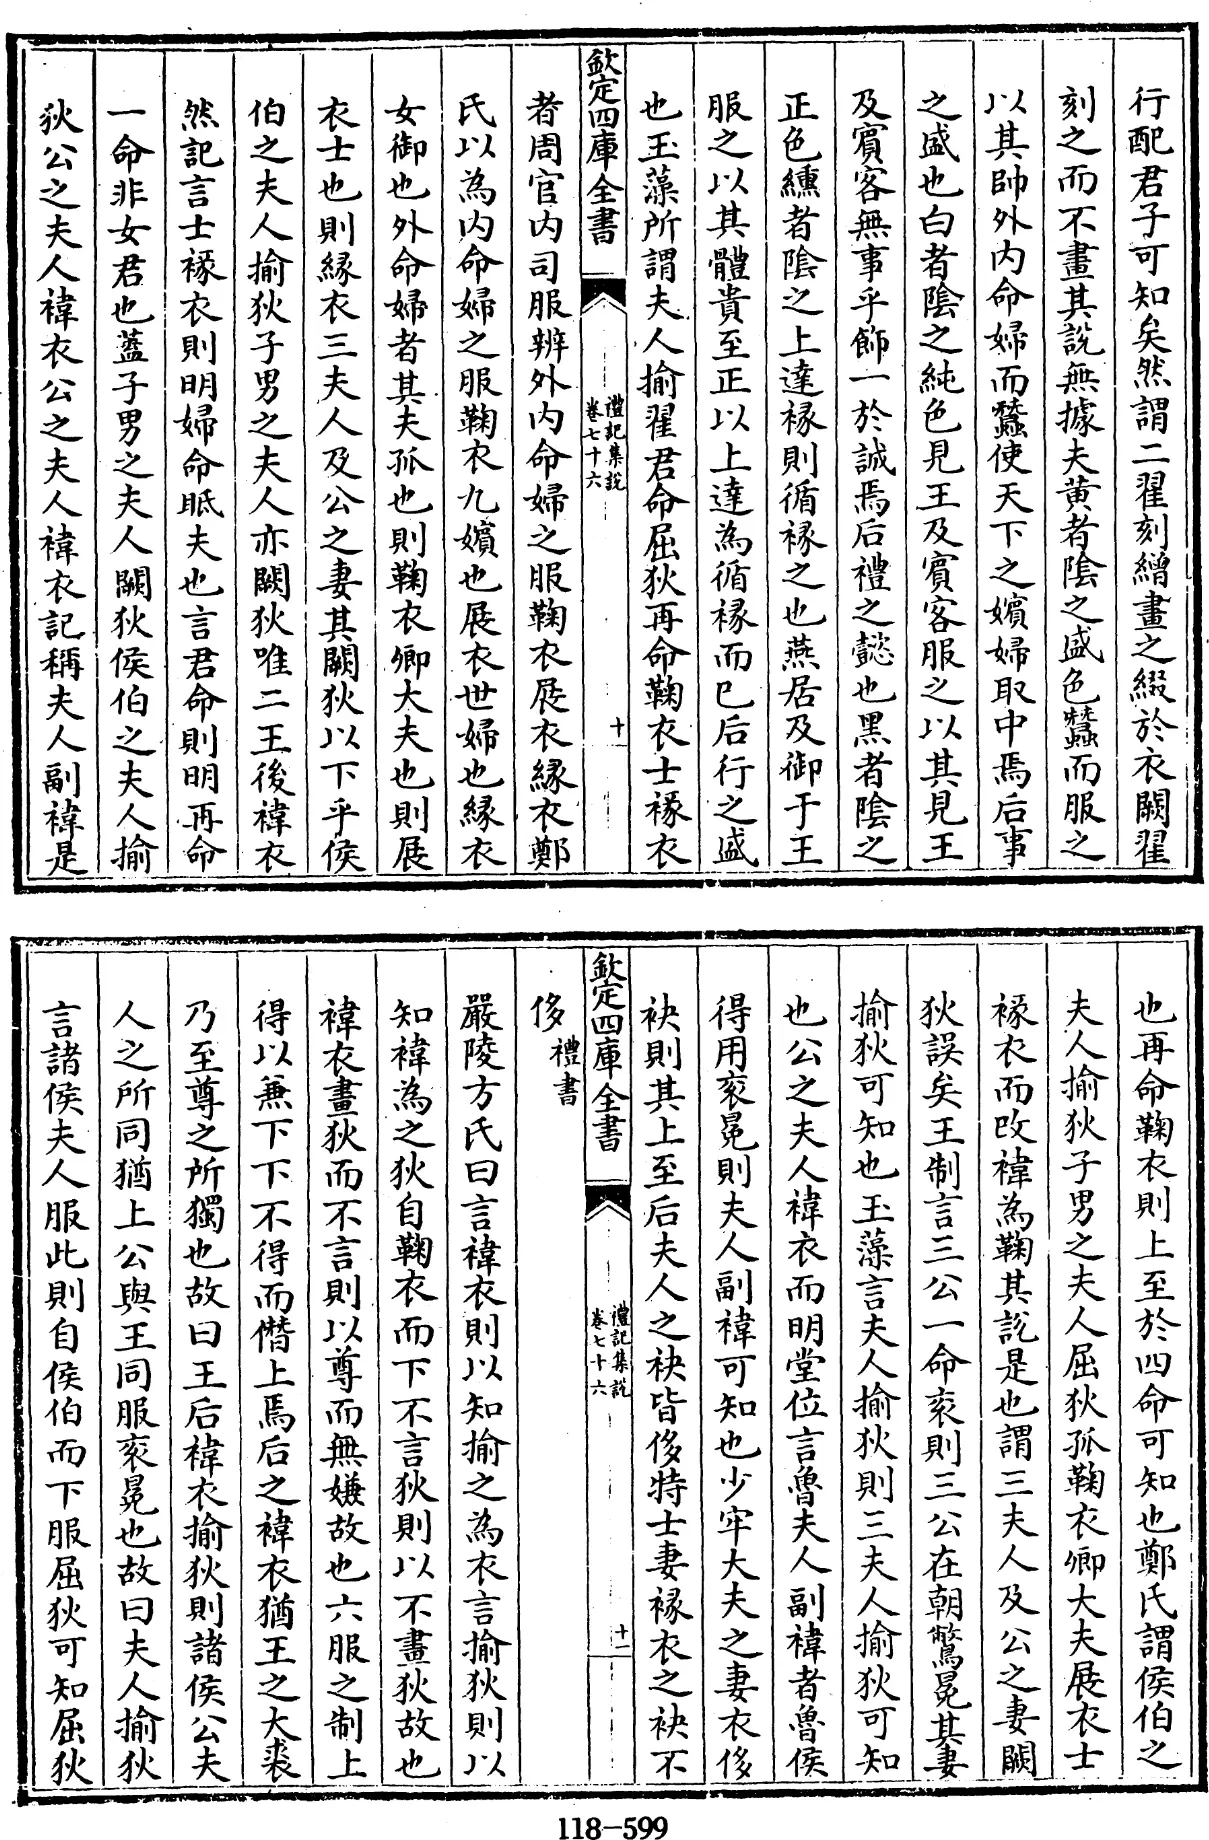 行配君子可知矣然謂二翟刻繒畫之綴於衣闕翟
刻之而不畫其說無據夫黃者陰之盛色蠶而服之
以其帥外内命婦而蠶使天下之嬪婦取中焉后事
之盛也白者陰之純色見王及賓客服之以其見王
及賓客無事乎飾一於誠焉后禮之懿也黒者陰之
正色纁者陰之上達褖則循褖之也燕居及御于王
服之以其體貴至正以上達為循褖而已后行之盛
也玉藻所謂夫人揄翟君命屈狄再命鞠衣士褖衣
欽定四庫全書
禮記集說
卷七十六
十
者周官内司服辨外内命婦之服鞠衣展衣縁衣鄭
氏以為内命婦之服鞠衣九嬪也展衣世婦也縁衣
女御也外命婦者其夫孤也則鞠衣卿大夫也則展
衣士也則縁衣三夫人及公之妻其闕狄以下乎侯
伯之夫人揄狄子男之夫人亦闕狄唯二王後褘衣
然記言士褖衣則明婦命眡夫也言君命則明再命
一命非女君也蓋子男之夫人闕狄侯伯之夫人揄
狄公之夫人褘衣公之夫人褘衣記稱夫人副褘是
也再命鞠衣則上至於四命可知也鄭氏謂侯伯之
夫人揄狄子男之夫人屈狄孤鞠衣卿大夫展衣士
褖衣而改褘為鞠其說是也謂三夫人及公之妻闕
狄誤矣王制言三公一命衮則三公在朝鷩冕其妻
揄狄可知也玉藻言夫人揄狄則三夫人揄狄可知
也公之夫人褘衣而明堂位言魯夫人副褘者魯侯
得用衮冕則夫人副褘可知也少牢大夫之妻衣侈
袂則其上至后夫人之袂皆侈特士妻褖衣之袂不
欽定四庫全書
禮記集說
卷七十六
十一
侈禮書
嚴陵方氏曰言褘衣則以知揄之為衣言揄狄則以
知褘為之狄自鞠衣而下不言狄則以不畫狄故也
褘衣畫狄而不言則以尊而無嫌故也六服之制上
得以兼下下不得而僭上焉后之褘衣猶王之大裘
乃至尊之所獨也故曰王后褘衣揄狄則諸侯公夫
人之所同猶上公與王同服衮冕也故曰夫人揄狄
言諸侯夫人服此則自侯伯而下服屈狄可知屈狄
118-599